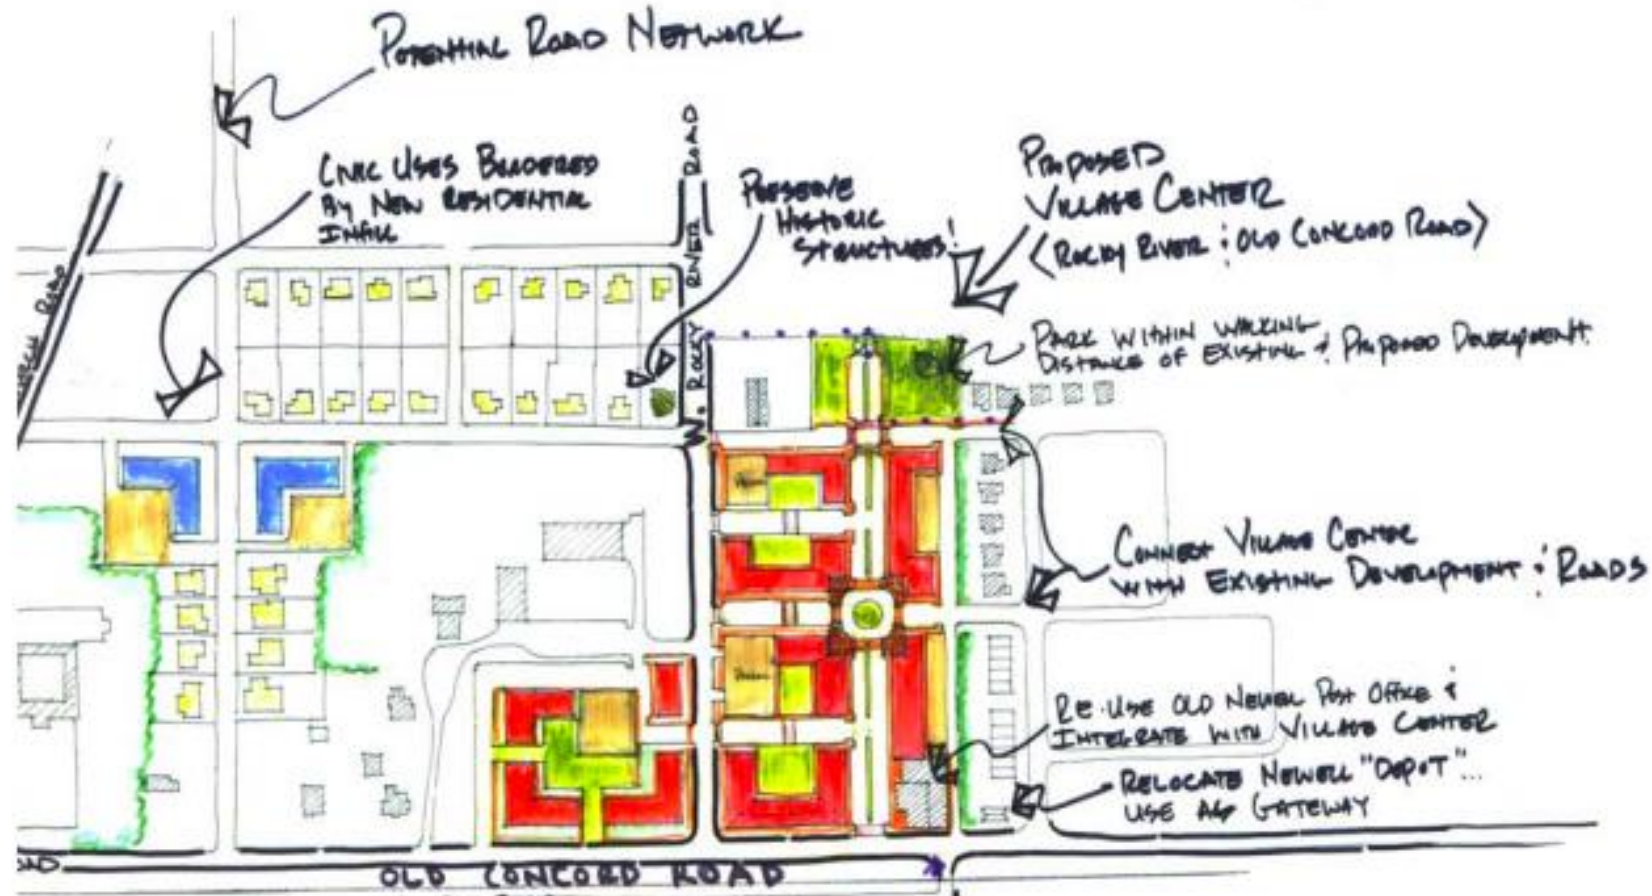 POTENTIAL ROAD NETWORK
CIVIC USES BORDERED
BY NEW RESIDENTIAL
INFILL
W. ROCKY RIVER ROAD
PRESERVE
HISTORIC
STRUCTURES!
PROPOSED
VILLAGE CENTER
(ROCKY RIVER & OLD CONCORD ROAD)
PARK WITHIN WALKING
DISTANCE OF EXISTING & PROPOSED DEVELOPMENT.
ROAD
CONNECT VILLAGE CENTER
WITH EXISTING DEVELOPMENT & ROADS
RE-USE OLD NEWELL POST OFFICE &
INTEGRATE WITH VILLAGE CENTER
RELOCATE NEWELL "DEPOT"...
USE AS GATEWAY
OLD CONCORD ROAD